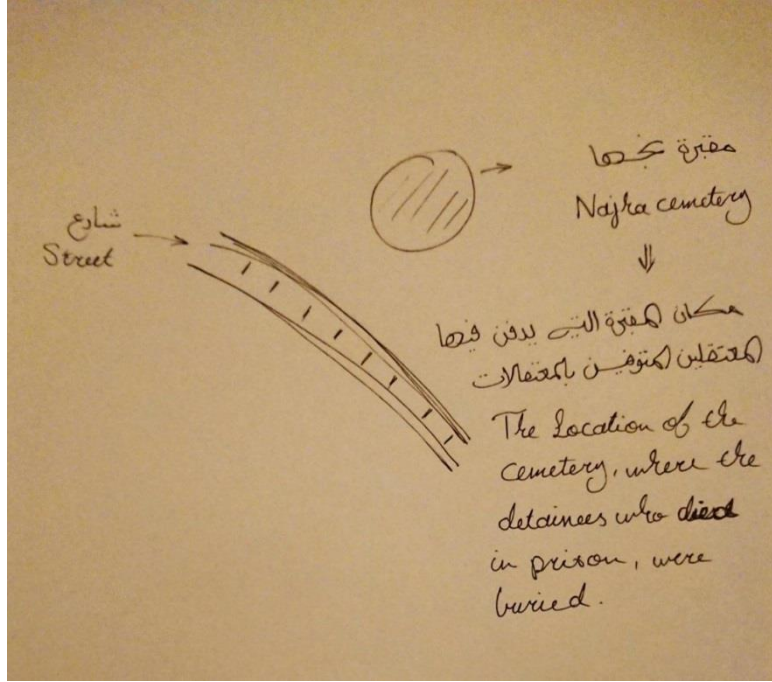 شارع
Street
مقبرة نجها
Najha cemetery
مكان المقبرة التي يدفن فيها
المعتقلين المتوفين بالمعتقلات
The Location of the
cemetery, where the
detainees who died
in prison, were
buried.